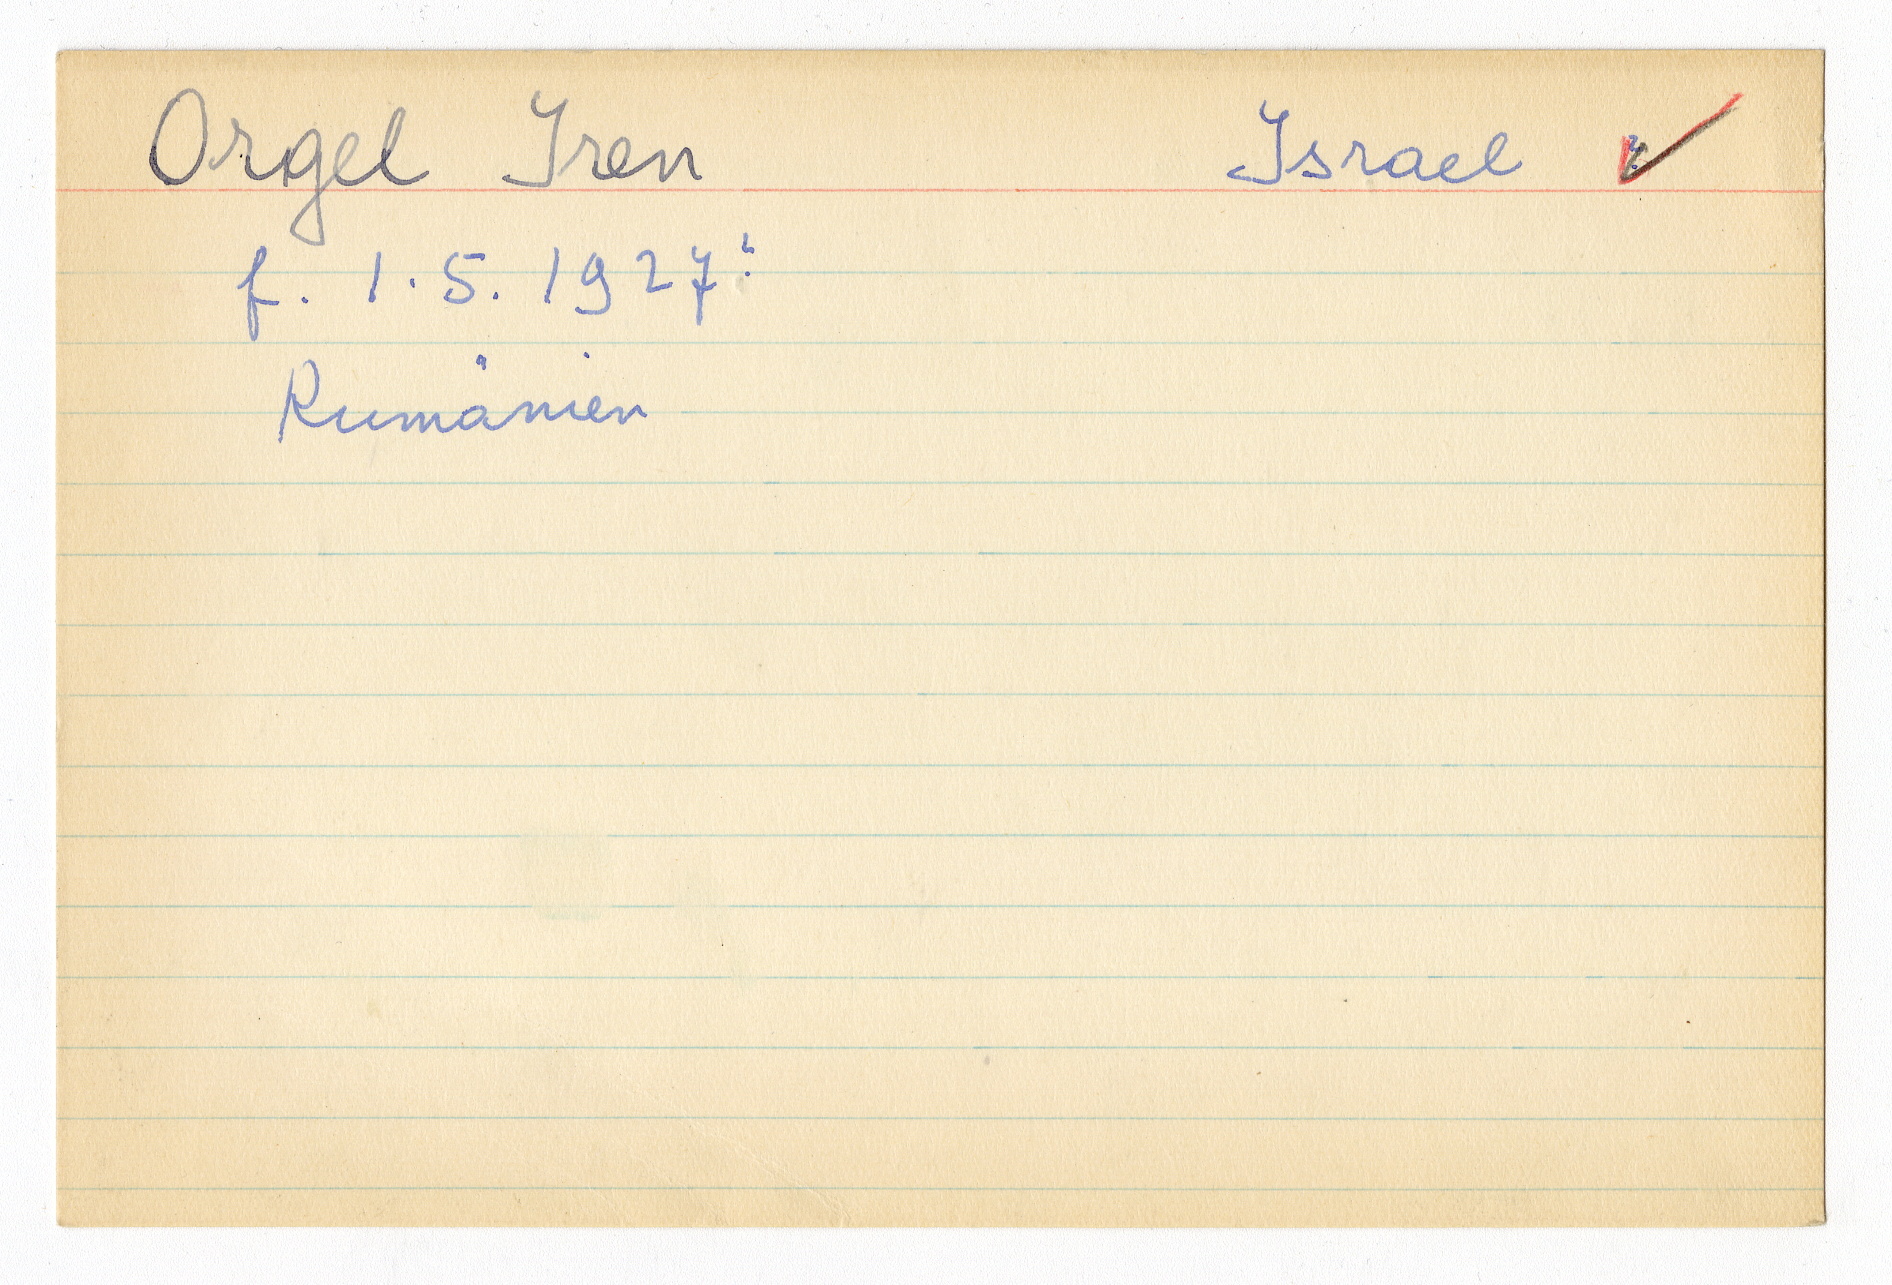 Orgel Iren Israel ✓
f. 1.5.1927
Rumänien